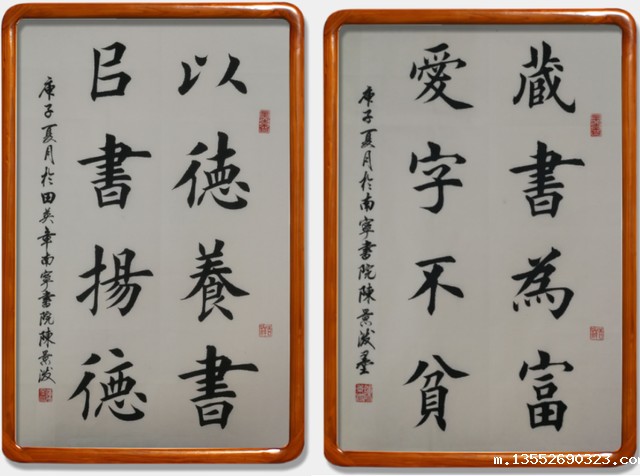 以德養書
㠯書揚德
庚子夏月於田英章南寧書院陳景
蔵書為富
愛字不貧
庚子夏月於南寧書院陳景墨
m.13552690323.co